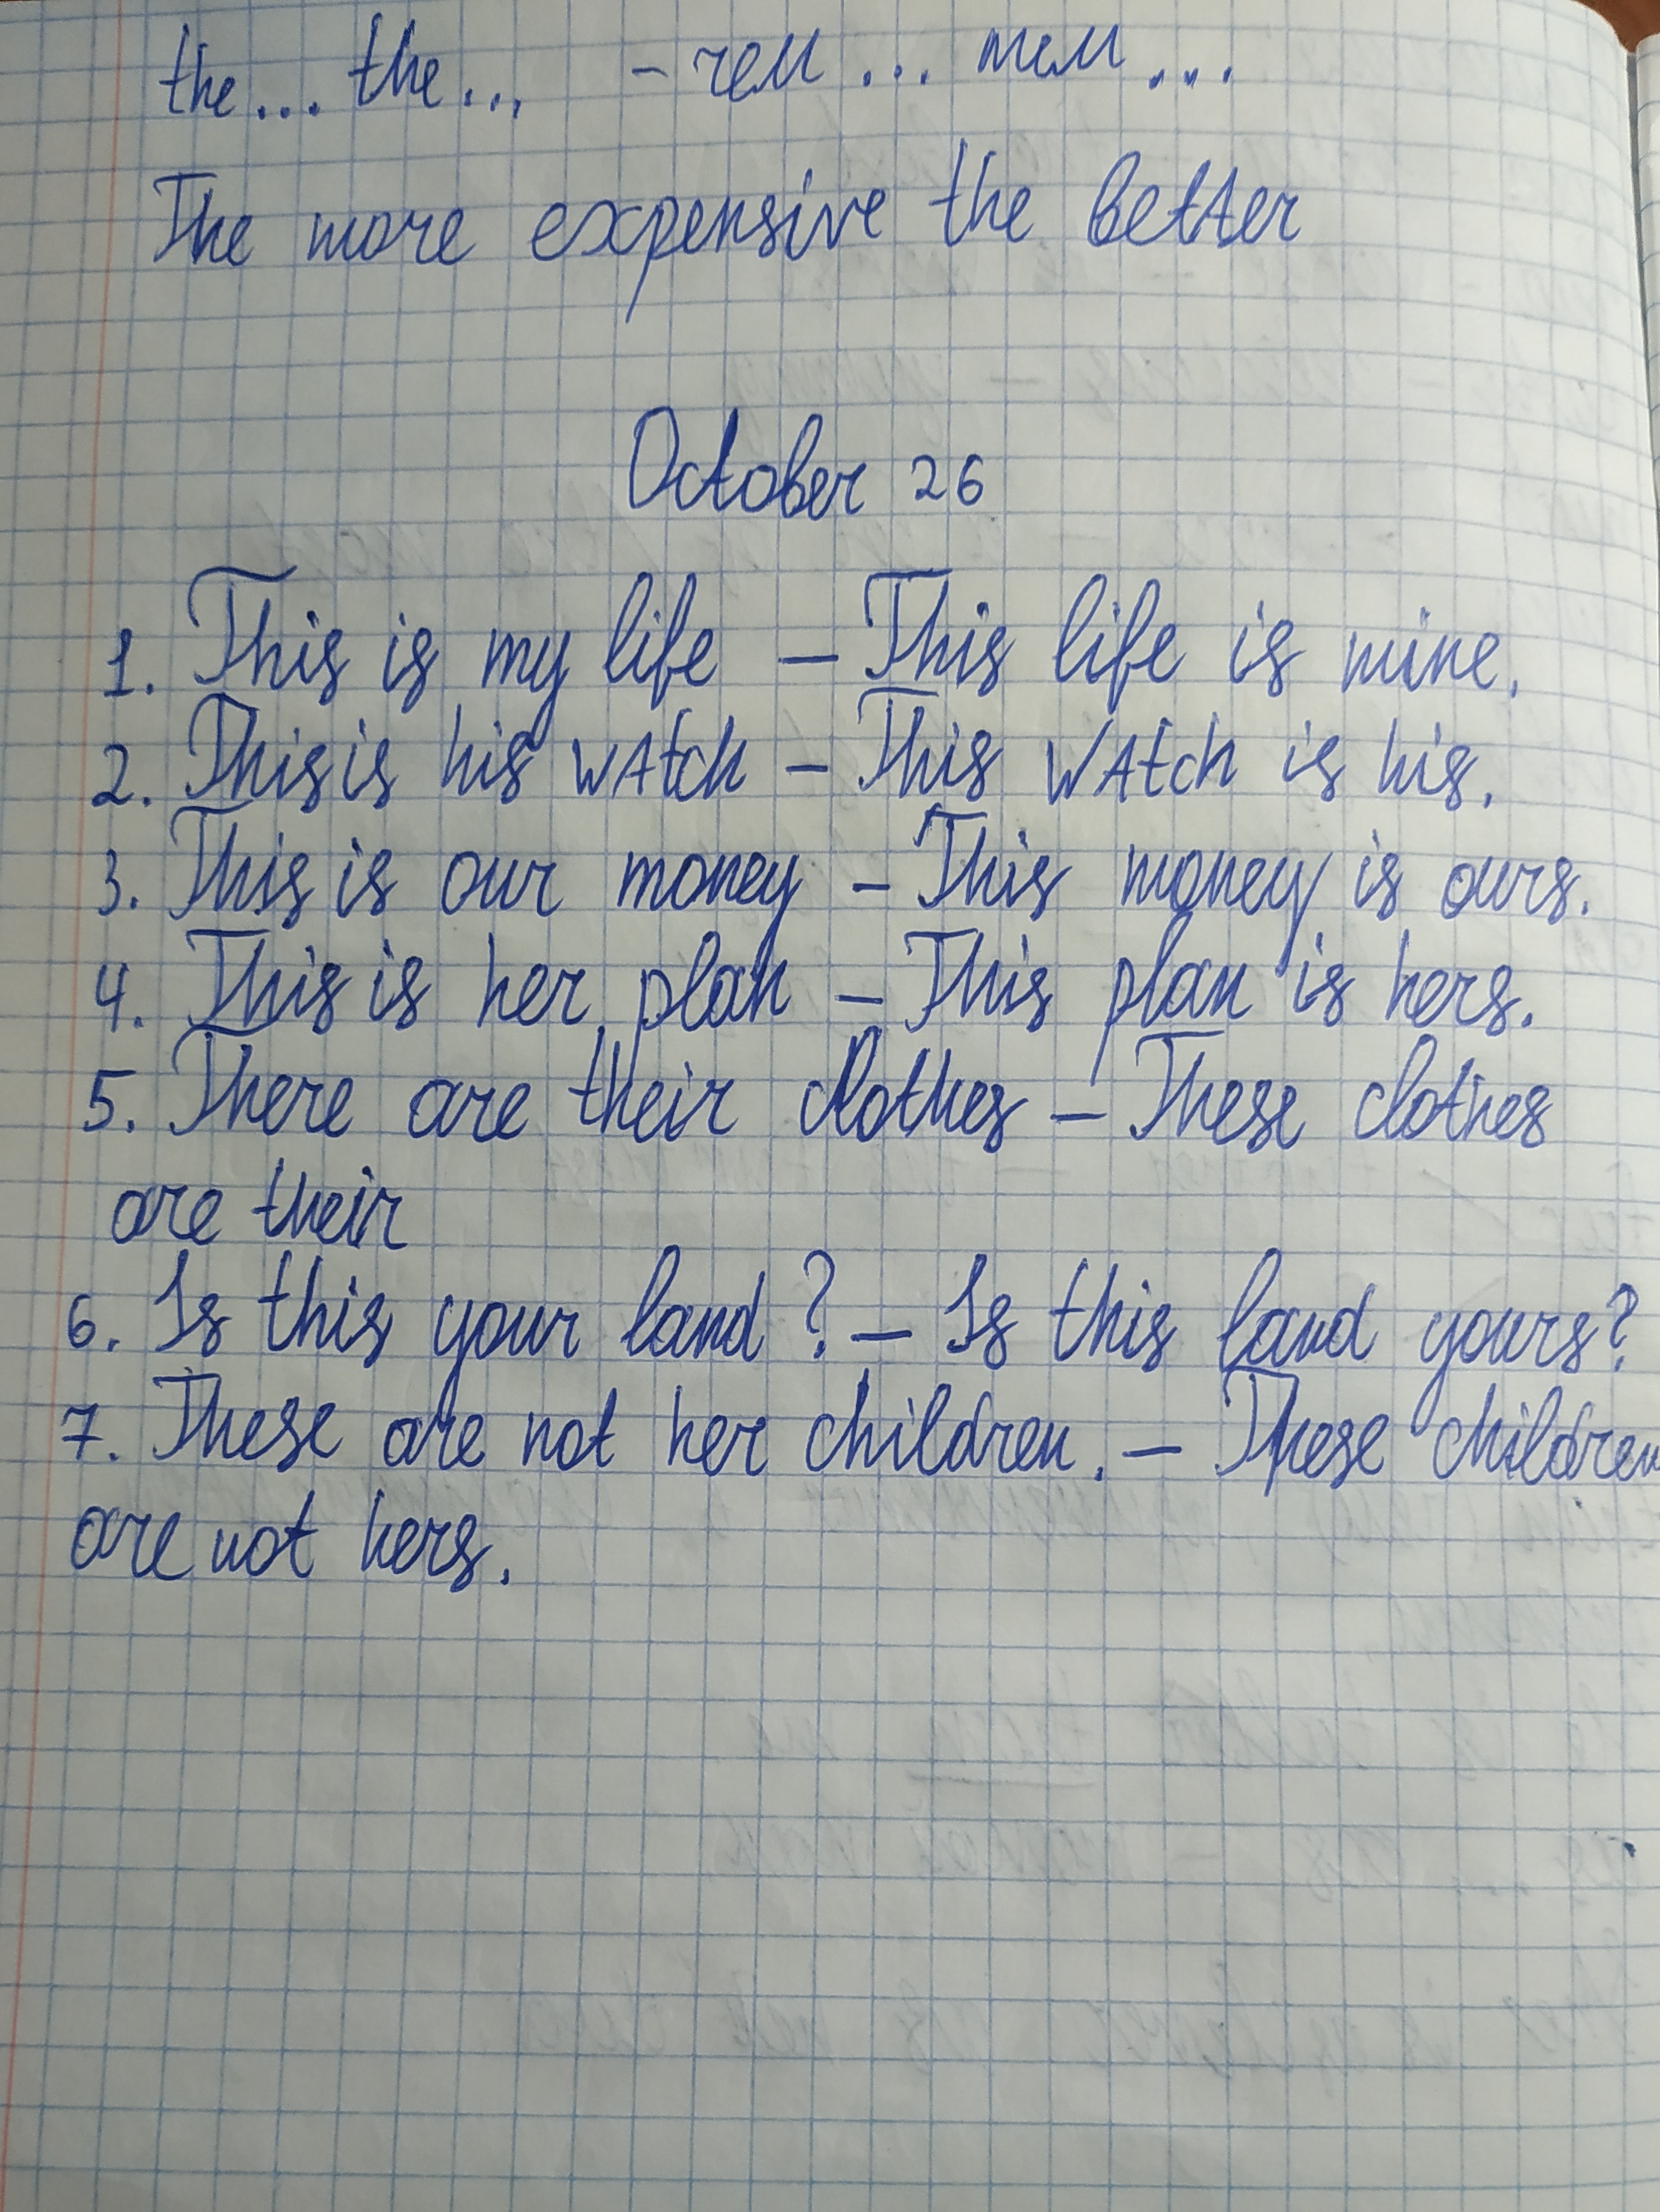 the... the... - чем ... тем ...
The more expensive the better
October 26
1. This is my life – This life is mine.
2. This is his watch – This watch is his.
3. This is our money – This money is ours.
4. This is her plan – This plan is hers.
5. There are their clothes – These clothes
are their
6. Is this your land? – Is this land yours?
7. These are not her children. – These children
are not hers.